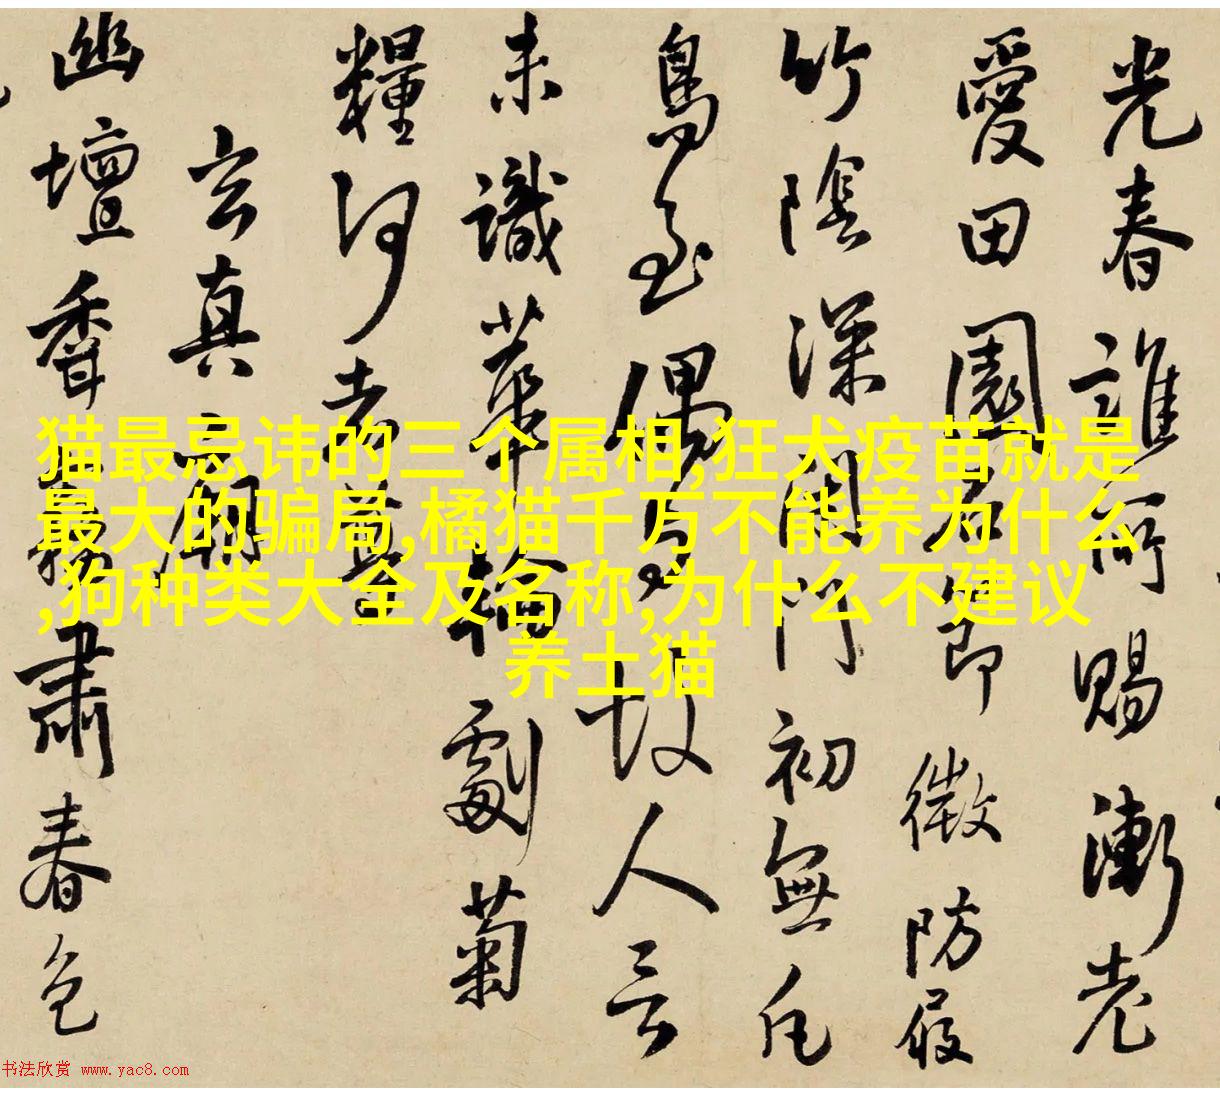 光春誰所賜漸老
愛田園石即微防屐
竹陰深閉門初無凡
鳥至偶與故人言
未識華檐劇菊
糧何
玄真廟
幽壇肅春色
猫最忌讳的三个属相,狂犬疫苗就是
最大的骗局,橘猫千万不能养为什么
,狗种类大全及名称,为什么不建议
养土猫
书法欣赏 www.yac8.com